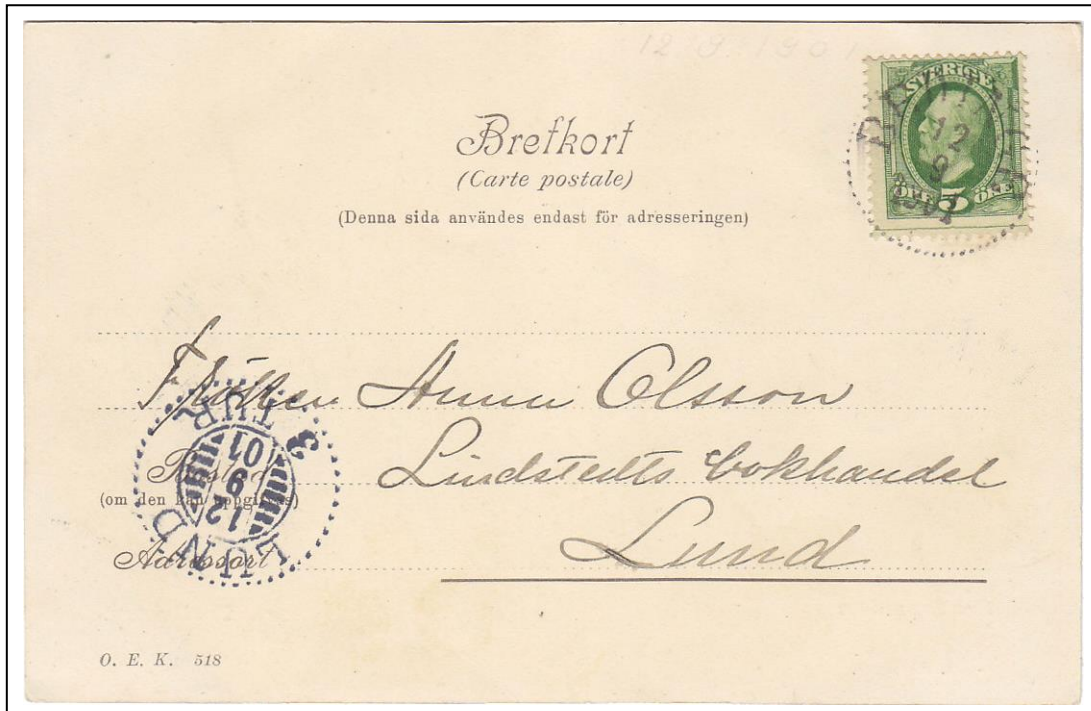 12 9 1901
SVERIGE
ÖRE 5 ÖRE
12
9
1901
Brefkort
(Carte postale)
(Denna sida användes endast för adresseringen)
Fröken Anna Olsson
Lindstedts bokhandel
Lund
Bostad
(om den kan uppgifvas)
Adressort
LUND
12
9
01
3 TUR
O. E. K. 518